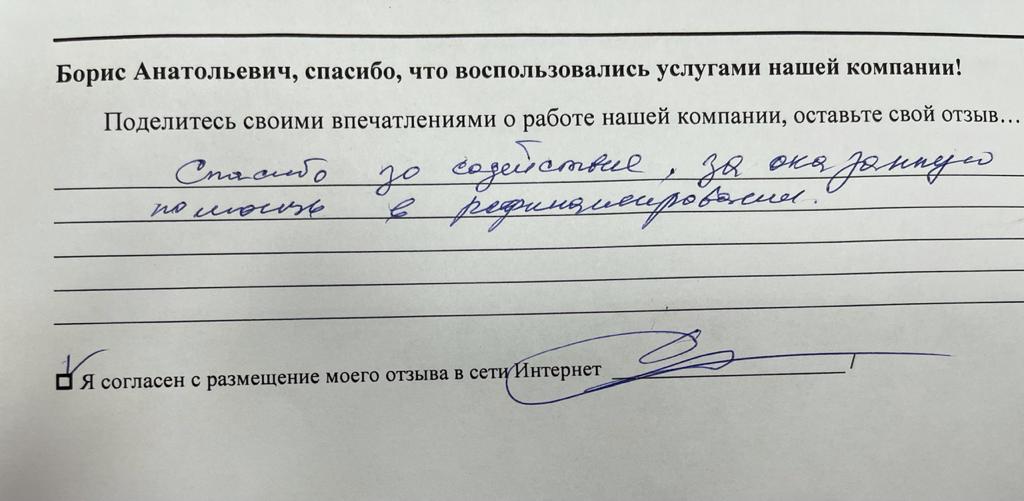 Борис Анатольевич, спасибо, что воспользовались услугами нашей компании!
Поделитесь своими впечатлениями о работе нашей компании, оставьте свой отзыв...
Спасибо за содействие, за оказанную
помощь в рефинансировании.
Я согласен с размещение моего отзыва в сети Интернет